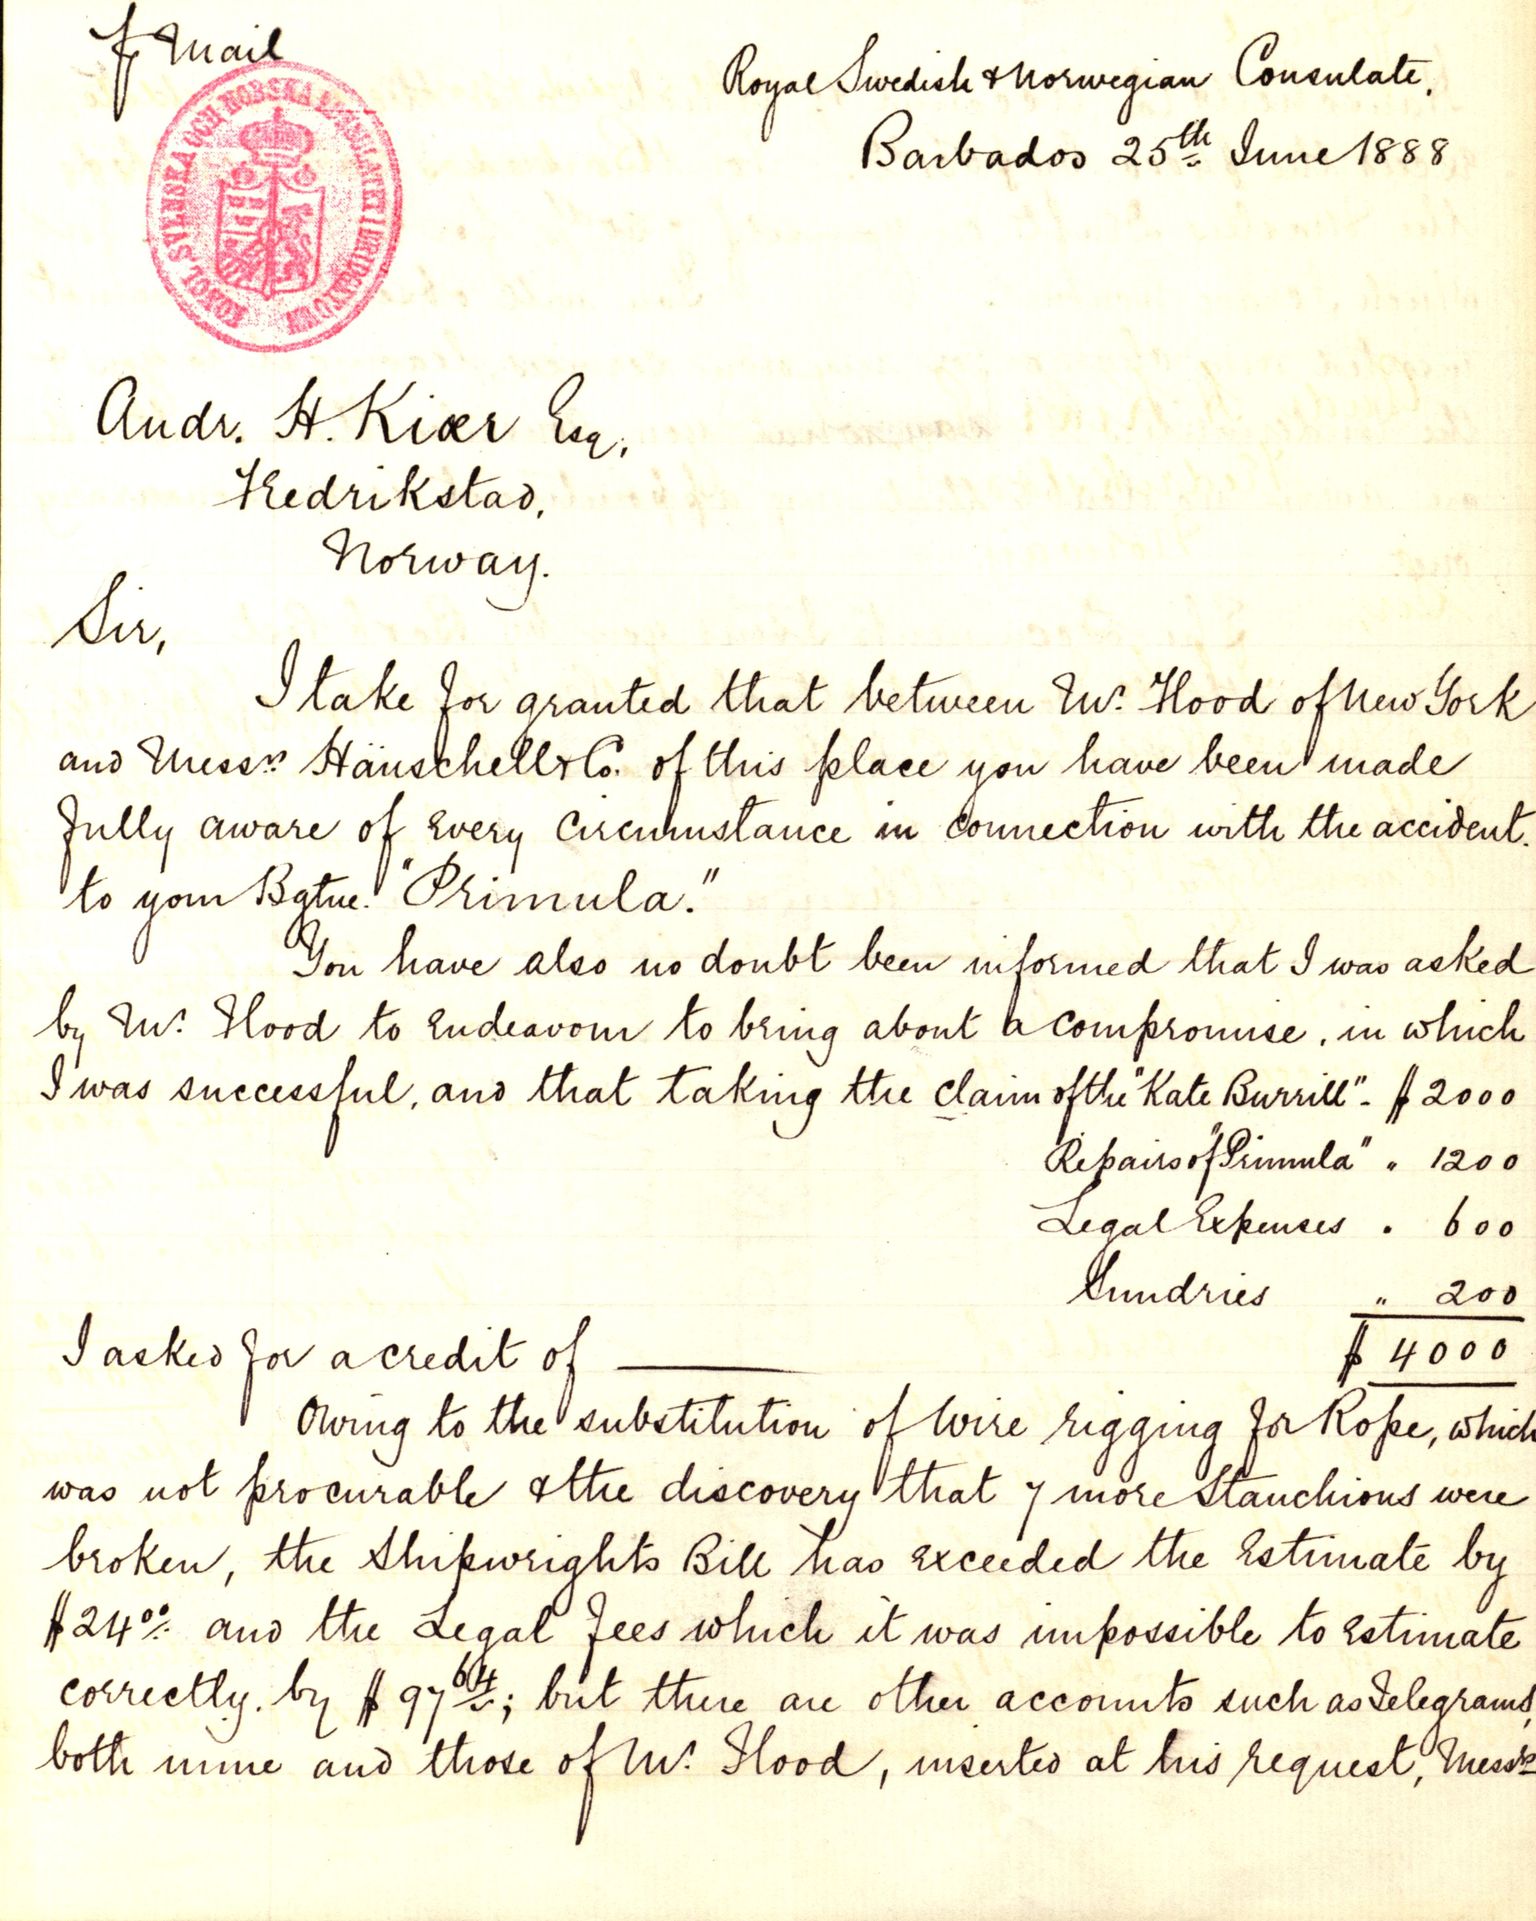 ⅌ Mail
KONGL. SVENSKA OCH NORSKA KONSULATET I BRIDGETOWN
Royal Swedish & Norwegian Consulate,
Barbados 25th June 1888
Andr. H. Kiær Esq,
Fredrikstad,
Norway.
Sir,
I take for granted that between Mr. Hood of New York
and Messrs Hänschell & Co. of this place you have been made
fully aware of every circumstance in connection with the accident
to your Bgtne. "Primula."
You have also no doubt been informed that I was asked
by Mr. Hood to endeavour to bring about a compromise, in which
I was successful, and that taking the claim of the "Kate Burrill" - $ 2000
Repairs of "Primula" " 1200
Legal Expenses " 600
Sundries " 200
I asked for a credit of ——— $ 4000
Owing to the substitution of Wire rigging for Rope, which
was not procurable & the discovery that 7 more Stanchions were
broken, the Shipwrights Bill has exceeded the Estimate by
$24.00 and the Legal Fees which it was impossible to estimate
correctly. by $ 97.64; but there are other accounts such as Telegrams,
both mine and those of Mr. Hood, inserted at his request, Messrs